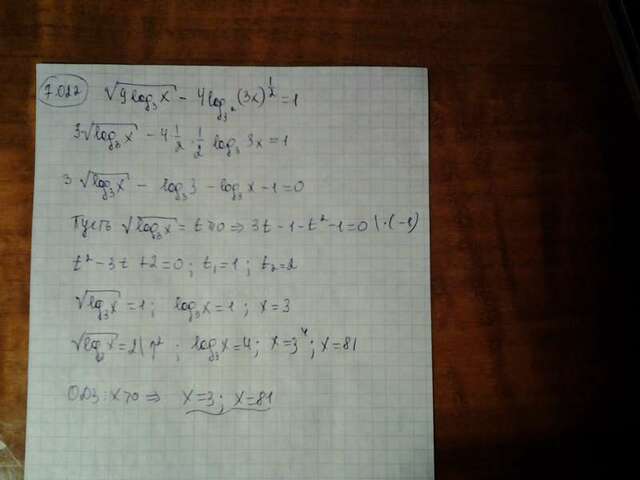 7.022 √(9log₃x) - 4log₃²(3x)^(1/2) = 1
3√(log₃x) - 4·1/2·1/2 log₃ 3x = 1
3√(log₃x) - log₃3 - log₃x - 1 = 0
Пусть √(log₃x) = t ≥ 0 ⇒ 3t - 1 - t² - 1 = 0 | ·(-1)
t² - 3t + 2 = 0; t₁ = 1; t₂ = 2
√(log₃x) = 1; log₃x = 1; x = 3
√(log₃x) = 2 |↑²; log₃x = 4; x = 3⁴; x = 81
ОДЗ: x > 0 ⇒ x = 3; x = 81